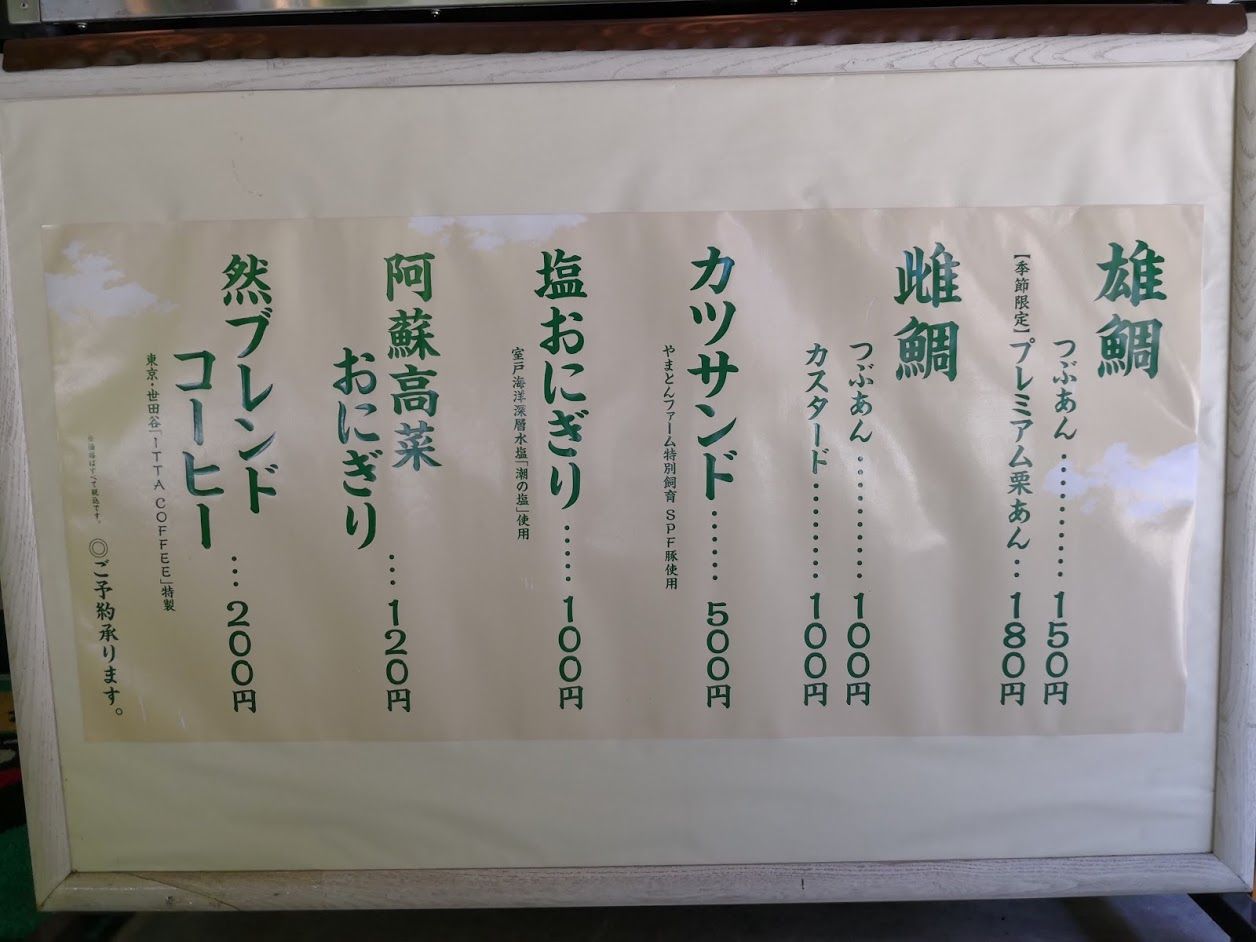 雄鯛
つぶあん………150円
【季節限定】プレミアム栗あん…180円
雌鯛
つぶあん…………100円
カスタード………100円
カツサンド……500円
やまとんファーム特別飼育 SPF豚使用
塩おにぎり……100円
室戸海洋深層水塩「潮の塩」使用
阿蘇高菜
おにぎり…120円
然ブレンド
コーヒー…200円
東京・世田谷「ITTA COFFEE」特製
◎ご予約承ります。